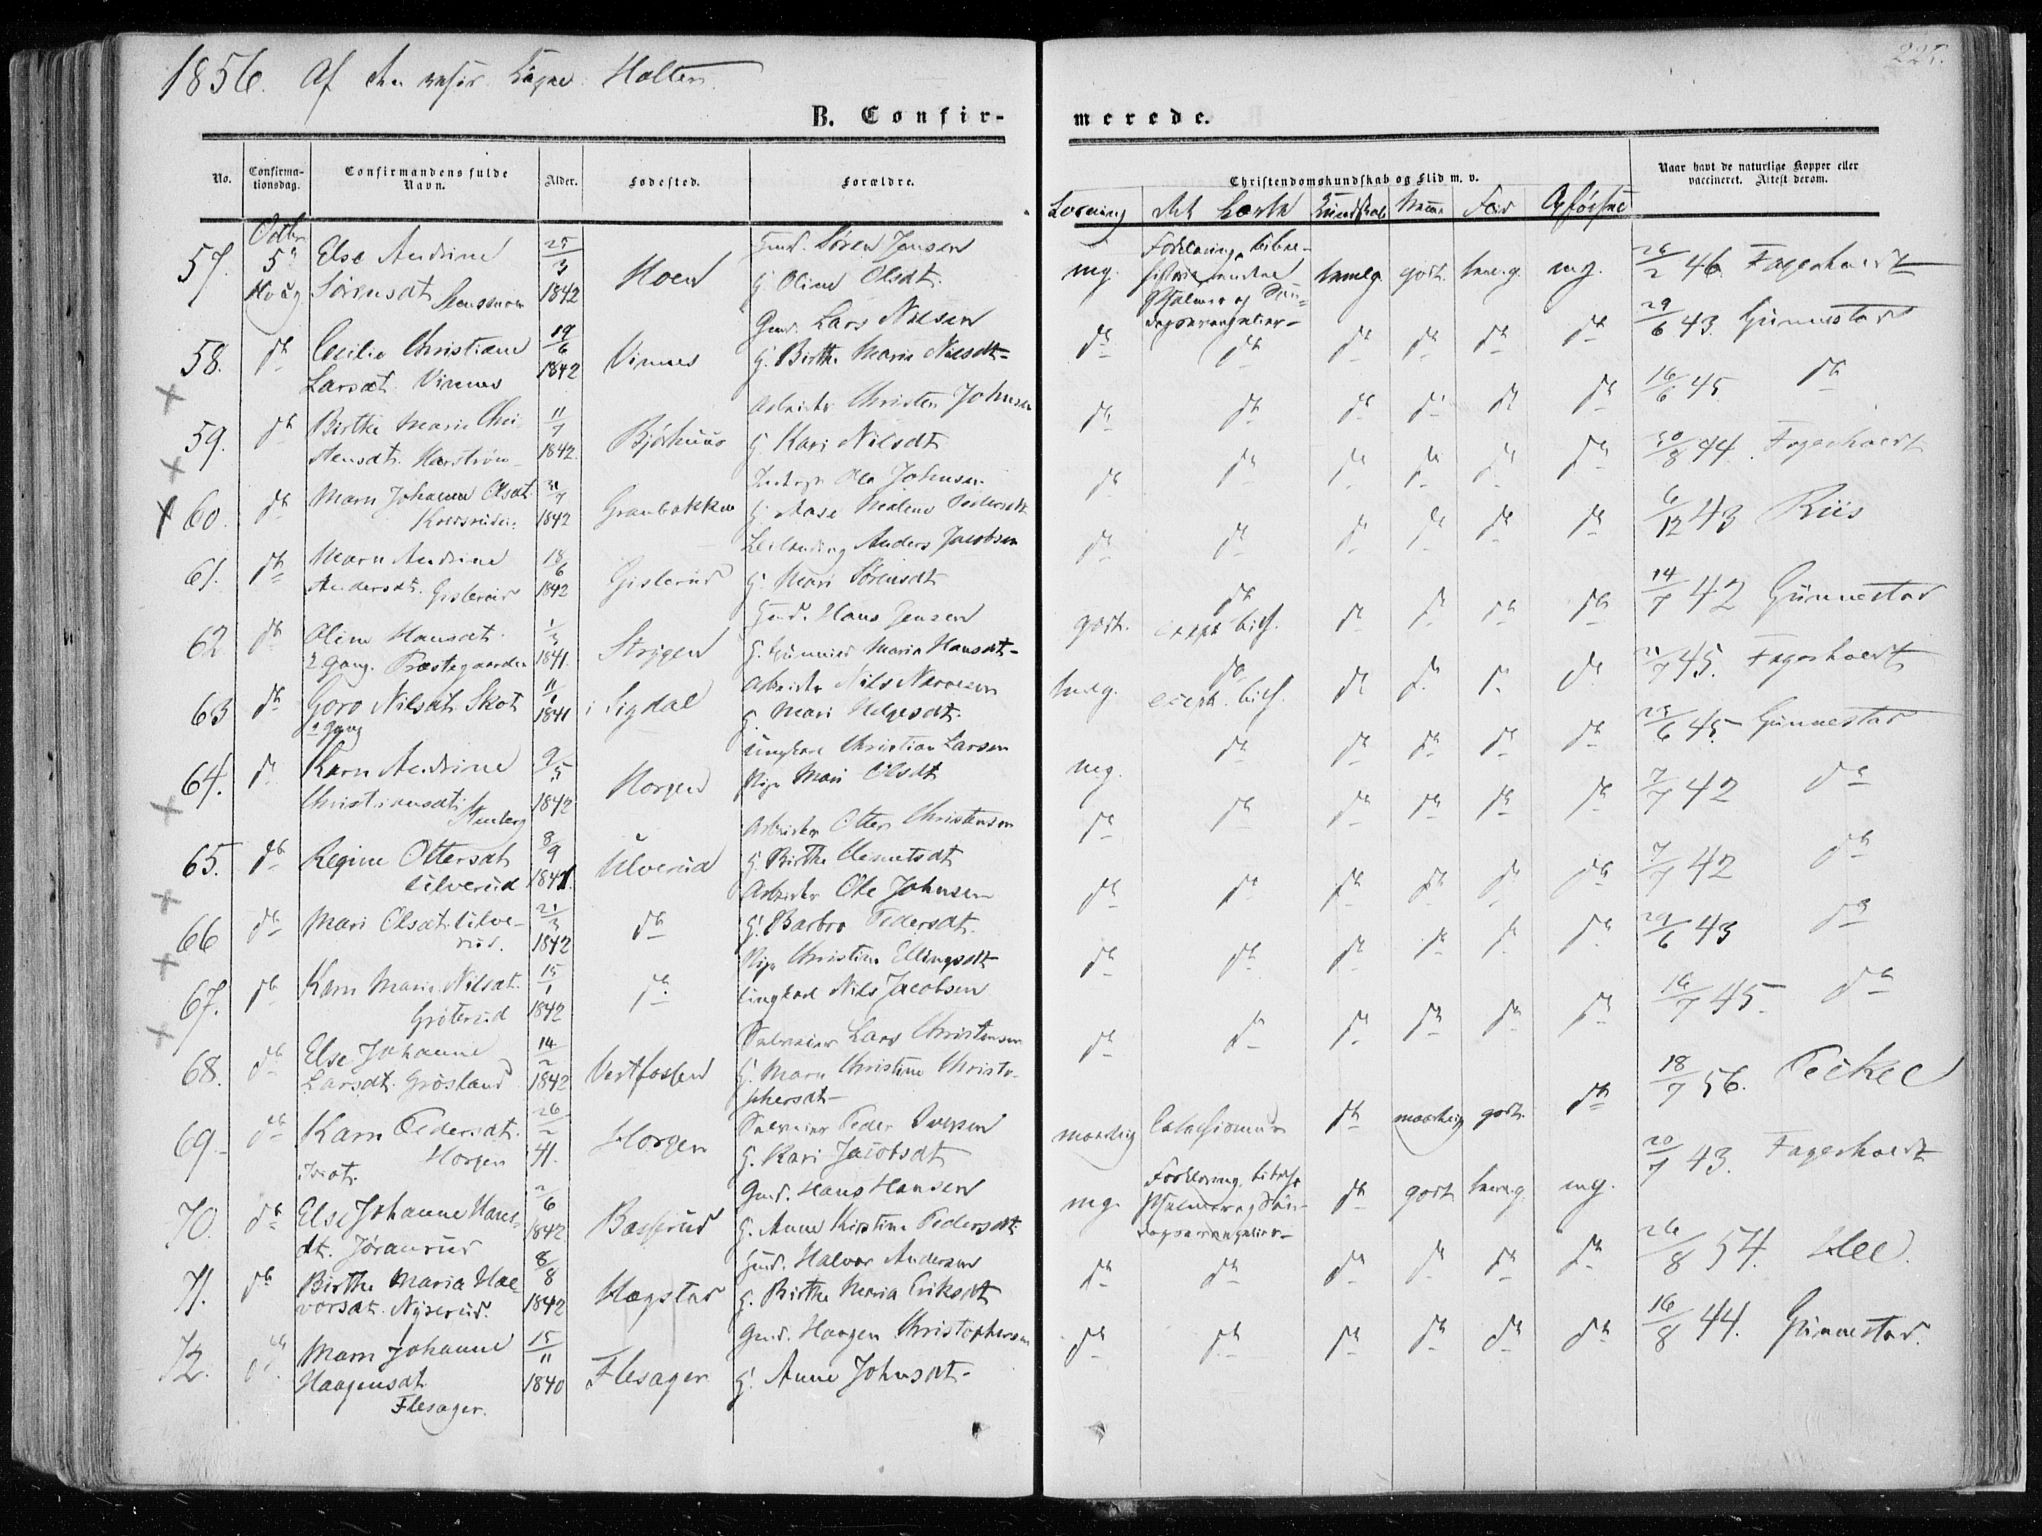 1856. Af Holter
225.
B. Confir-
merede.
No.
Confirma-
tionsdag.
Confirmandens fulde
Navn.
Alder.
Fødested.
Forældre.
Christendomskundskab og Flid m. v.
Naar havt de naturlige Kopper eller
vaccineret. Attest derom.
Læsning det Lærte Kundskab Flid Opførsel
57. Octbr 5te Else Andrine 25/3 Gmd. Søren Jensen
Sørensdt 1842 Hoen G. Oline Olsdt.
mg. Forklaring, bibel- historie Psalmer og Søn- dagsevangelier tmlg. godt. tmlg. mg. 26/2 46. Fagerholdt
58. do Cecilie Christiane 19/6 Gmd. Lars Nilsen
Larsdt. Vinnes 1842 Vinnes G. Birthe Marie Nilsdt
do do do do do do 29/6 43. Gunnestad
59. do Birthe Marie Chri- 11/7 Arbeider Christen Johnsen
stensdt. 1842 Bjørhuus G. Kari Nilsdt
do do do do do do 16/6 45 do
60. do Maren Johanne Olsdt. 1842 Granbakken Ole Johnsen
G. Aase Malene Pedersdt
do do do do do do 8 44. Fagerholdt
61. do Maren Andrine 18/6 Leilending Anders Jacobsen
Andersdt. Gislerud 1842 Gislerud G. Mari Sørensdt
do do do do do do 6/12 43 Riis
62 do Oline Hansdt. 1/3 Gmd. Hans Jensen
2 Gang. Præstegaarden 1841. Strygen G. Gunnild Maria Hansdt
godt. do bibh. do do do do 14/7 42 Gunnestad
63 do Goro Nilsdt. Skot 11/1 Arbeider Nils
2 Gang 1841 i Sigdal G. Mari Helgesdt.
tmlg. do bibh. do do do do 21/7 45. Fagerholdt
64. do Karn Andrine 9/5 Ungkarl Christian Larsen
Christiansdt. Stenberg 1842 Horgen Pige Mari Olsdt
mg. do do do do do 25/6 45. Gunnestad
65. do Regine Ottersdt 8/9 Arbeider Otter Christensen
Ulverud 1841. Ulverud G. Birthe Clemetsdt
do do do do do do 7/7 42 do
66 do Mari Olsdt. Ulve- 21/3 Arbeider Ole Johnsen
rud. 1842 do G. Barbro Pedersdt.
do do do do do do 7/7 42 do
67. do Karn Marie Nilsdt. 15/1 Pige Christine Ellingsdt
Grøterud 1842 do Ungkarl Nils Jacobsen
do do do do do do 29/6 43 do
68. do Else Johanne 14/2 Selveier Lars Christensen
Larsdt. Grøsland 1842 Vestfossen G. Maren Christine Christo-
phersdt
do do do do do do 16/7 45 do
69. do Karn Pedersdt. 26/2 Selveier Peder Iversen
Horgen 41. Horgen G. Kari Jacobsdt
Idiot.
maadelig Catechismus do maadelig godt. do 18/7 56.
70. do Else Johanne Hans- 2/6 Gmd. Hans Hansen
dt. Jøranrud 1842 Basserud G. Anne Kirstine Pedersdt.
mg. Forklaring, bibelh. Psalmer og Søn- dagsevangelier do godt tmlg. mg. 20/7 43. Fagerholdt
71. do Birthe Maria Hal- 8/8 Gmd. Halvor Andersen
vorsdt. Nyserud. 1842 Hagstad G. Birthe Maria Eriksdt
do do do do do do 26/8 54. Hee.
72. do Maren Johanne 15/11 Gmd. Haagen Christophersen
Haagensdt. 1840 Flesager G. Anne Johnsdt
Flesager.
do do do do do do 16/8 44. Gunnestad.